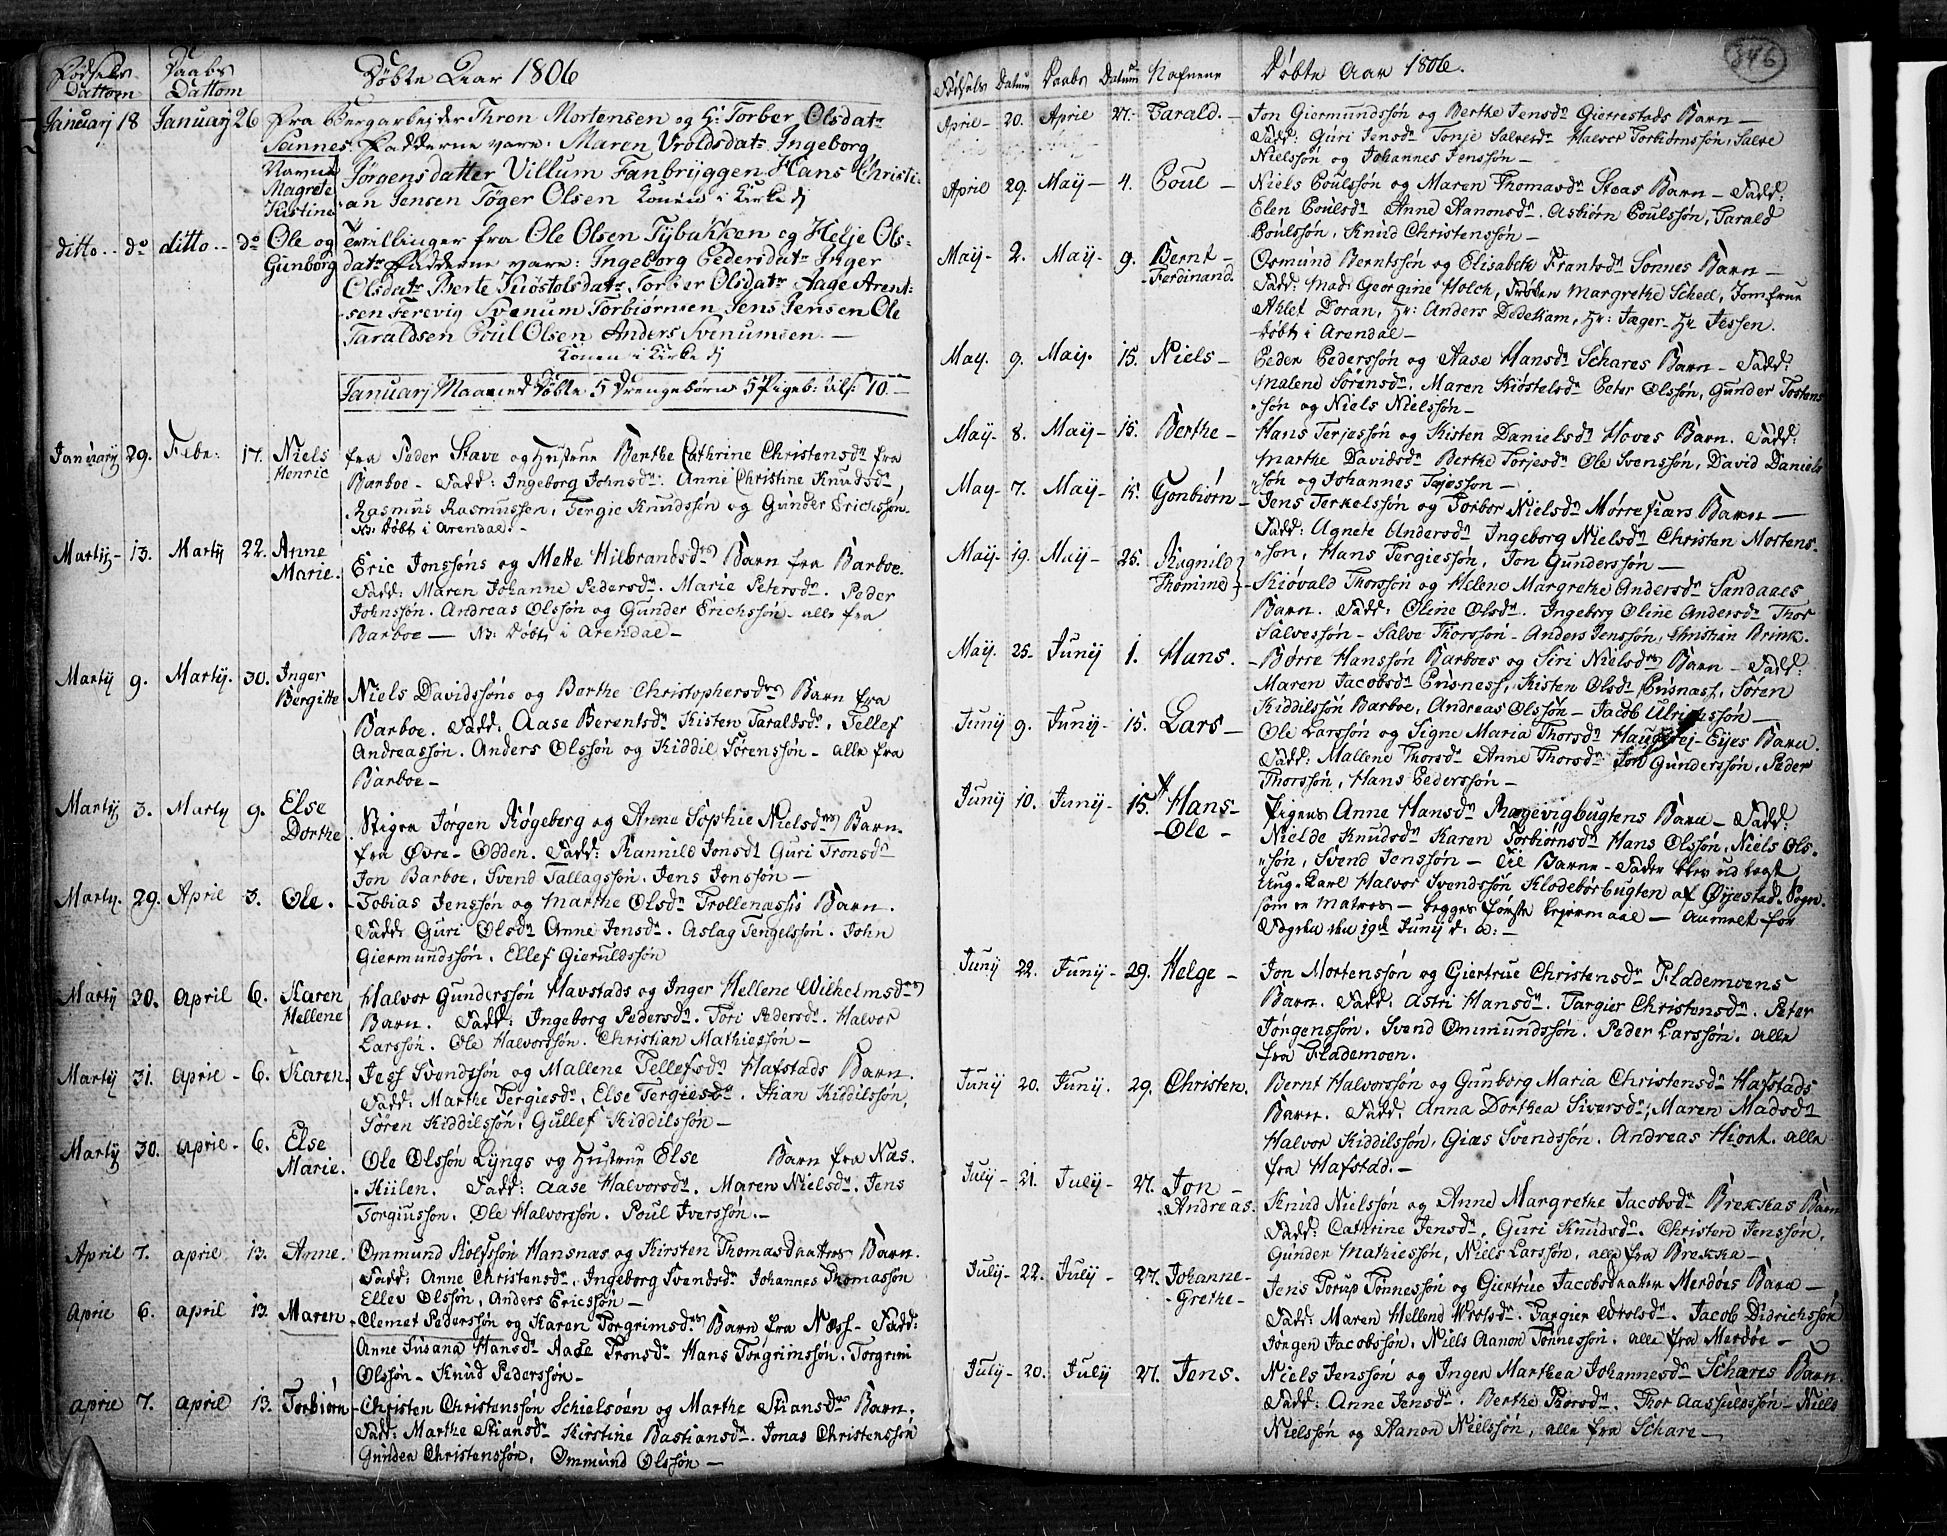 Fødsels Dattom
Daabs Dattom
Døbte Aar 1806
Januarj 18 Januarj 26 fra Bergarbejder Thron Mortensen og H: Torber Olsdatr
Sannes Fadderne vare: Maren Vroldsdatr Ingeborg
Navnet Magrete Kistine
Jørgensdatter Villum Fanbryggen Hans Christi-
an Jensen Tøger Olsen Konen i Kirke dj
ditto.. do ditto.. do Ole og Gunborg
Tvillinger fra Ole Olsen Tybakken og Helje Ols-
datr Fadderne vare: Ingeborg Pedersdatr Inger
Olsdatr Berte Kiøstolsdatr Torber Olsdatr Aage Arent-
sen Ferevig Svenum Torbiørnsen Jens Jensen Ole
Taraldsen Poul Olsen Anders Svenumsen. —
Konen i Kirke dj
Januarj Maaned Døbte 5 Drengebørn 5 Pigeb: tils: 10. —
January 29. Febr: 17. Niels Henric
fra Peder Stave og Hustrue Berthe Cathrine Christensdr fra
Barboe – Fadd: Ingeborg Johnsdr. Anne Christine Knudsdr,
Rasmus Rasmussen, Tergie Knudssøn og Gunder Erichssøn.
NB: Døbt i Arendal. –
Martij – 13. Martij 22. Anne Marie.
Eric Jonssøns og Mette Hilbrandsdr Barn fra Barboe.
Fadd: Maren Johanne Pedersdr. Marie Petersdr. Peder
Johnssøn. Andreas Olssøn og Gunder Erichssøn – alle fra
Barboe — NB: Døbt i Arendal –
Martij 9. Martij. 30. Inger Bergitte
Niels Davidssøns og Berthe Christophersdr Barn fra
Barboe. Fadd: Aase Berentsdr Kisten Taraldsdr, Tellef
Andreassøn. Anders Olssøn og Kiddil Sørenssøn – alle fra
Barboe –
Martij 3. Martij 9. Else Dorthe
Stiger Jørgen Røgeberg og Anne Sophie Nielsdr Barn
fra Øvre-Odden. Fadd: Rannild Jonsdr Guri Tronsdr
Jon Barboe, Svend Tallagssøn. Jens Jonssøn –
Martij. 29. April 3. Ole.
Tobias Jenssøn og Marthe Olsdr Trollenæssis Barn.
Fadd: Guri Olsdr Anne Jensdr. Aslag Tengelssøn. John
Giermundssøn. Ellef Gieruldssøn
Martij 30. April 6. Karen Hellene
Halvor Gunderssøn Havstads og Inger Hellene Wilhelmsdr
Barn. Fadd: Ingeborg Pedersdr. Tori Pedersdr. Halvor
Larssøn. Ole Halvorssøn. Christian Mathiessøn –
Martij 31. April – 6. Karen.
Jess Svendssøn og Mallene Tellefsdr Hafstads Barn.
Fadd: Marthe Tergiesdr, Else Tergiesdr. Stian Kiddilssøn,
Søren Kiddilssøn, Gullef Kiddilssøn –
Martij 30. April – 6. Else Marie.
Ole Olssøn Lyngs og Hustrue Else Barn fra Næs-
Kiilen. Fadd: Aase Halvorsdr. Maren Nielsdr. Jens
Torgiussøn. Ole Halvorssøn. Poul Iverssøn. –
April 7. April 13. Anne.
Ommund Rolfssøn Hansnas og Kirsten Thomasdaatter Barn.
Fadd: Anne Christensdr. Ingeborg Svendsdr Johannes Thomassøn
Ellev Olssøn, Anders Ericssøn –
April 6. April 13. Maren
Clemet Pederssøn og Karen Torgrimsdr Barn fra Næss – Fadd:
Anne Susana Hansdr Aase Tronsdr Hans Torgrimssøn. Torgrim
Olssøn – Knud Pederssøn –
April 7. April 13. Torbiørn
Christen Christenssøn Schielsøen og Marthe Stiansdr Barn.
Fadd: Marthe Stiansdr Kirstine Bastiansdr. Jonas Christenssøn
Gunder Christenssøn. Ommund Olssøn –
346
Fødsels Datum Daabs Datum Nafnene Døbte Aar 1806.
April – 20. April 27. Tarald. –
Jon Giermundssøn og Berthe Jensdr Gierrestads Barn –
Fadd: Guri Jensdr Tonje Salvesdr Halvor Torbiørnssøn, Salve
Nielssøn og Johannes Jenssøn –
April 29. May – 4. Poul –
Niels Poulssøn og Maren Thomasdr Stoas Barn – Fadd:
Elen Poulsdr Anne Aanonsdr. Asbiørn Poulssøn, Tarald
Poulssøn, Knud Christenssøn –
May – 2. May – 9. Bernt – Ferdinand
Ormund Berntssøn og Elisabeth Frantsdr Sonnes Barn –
Fadd: Mad: Georgine Holch, Frøken Margrethe Scheel, Jomfrue
Ahlet Doran, Hr: Anders Dedekam, Hr: Jæger – Hr Jessen.
Døbt i Arendal –
May. 9. May. 15. Niels –
Peder Pederssøn og Aase Hansdr Schares Barn – Fadd:
Malene Sørensdr. Maren Kiøstelsdr Peter Olssøn, Gunder Tostens
søn og Niels Nielssøn –
May – 8. May – 15. Berthe –
Hans Terjessøn og Kisten Danielsdr Hoves Barn. Fadd:
Marthe Davidsdr Berthe Torjesdr Ole Svenssøn, David Daniels
søn og Johannes Tojesson –
May – 7. May – 15. Gonbiørn –
Jens Terkelssøn og Torbor Nielsdr Mørrefiærs Barn –
Fadd: Agnete Andersdr Ingeborg Nielsdr Christen Mortens-
søn, Hans Tergiessøn, Jon Gunderssøn –
May – 19. May – 25. Ragnild Thomine
Kiøvald Thorssøn og Helene Margrethe Andersdr Sandaaes
Barn. Fadd: Oline Olsdr. Ingeborg Oline Andersdr Thor
Salvessøn – Salve Thorssøn – Anders Jenssøn, Christian Brink.
May. 25. Junij 1. Hans.
Børre Hanssøn Barboes og Siri Nielsdr Barn – Fadd:
Maren Jacobsdr Prisness, Kisten Olsdr Prisnæss, Søren
Kiddilssøn Barboe, Andreas Olssøn – Jacob Ulrichssøn –
Junij 9. Junij – 15. Lars –
Ole Larssøn og Signe Maria Thorsdr -Eijes Barn
Fadd: Mallene Thorsdr Anne Thorsdr Jon Gunderssøn, Peder
Thorssøn, Hans Pederssøn –
Junij 10. Junij – 15. Hans – Ole –
Pigens Anne Hansdr Rægevigbugtens Barn – Fadd:
Nielde Knudsdr Karen Torbiørnsdr Hans Olssøn, Niels Ols-
søn, Svend Jenssøn – Til Barne-Fader blev udlagt
Ung-Karl Halvor Svendssøn Klodebørbugten af Øyestad-Sogn.
som er Matros – begges første Leiermaal – anmelt for
Fogden den 19de Junij d: a: –
Junij 22. Junij – 29. Helge –
Jon Mortenssøn og Giertrue Christensdr Flademoens
Barn. Fadd: Astri Hansdr. Targier Christensdr. Peter
Jørgenssøn. Svend Ommundssøn. Peder Larssøn. alle
fra Flademoen.
Junij 20. Junij. 29. Christen.
Bernt Halvorssøn og Gunborg Maria Christensdr Hafstads
Barn. Fadd: Anna Dorthea Siversdr, Maren Madsdr
Halvor Kiddilssøn. Giæs Svendssøn. Andreas Hiort. alle
fra Hafstad. –
July – 21. July – 27. Jon – Andreas.
Knud Nielssøn og Anne Margrethe Jacobsdr Brekkas Barn
Fadd: Cathrine Jensdr. Guri Knudsdr. Christen Jenssøn,
Gunder Mathiessøn, Niels Larssøn, alle fra Brekka –
July – 22. July – 27. Johanne – Grethe –
Jens Torup Tønnessøn og Giertrue Jacobsdaatter Merdøes Barn –
Fadd: Maren Hellend Wrolsdr. Targier Wrolsdr. Jacob Didrichssøn
Jørgen Jacobssøn. Niels Aanon Tønnessøn. alle fra Merdøe –
July – 20. July 27. Jens.
Niels Jenssøn og Inger Marthea Johannesdr Schares Barn
Fadd: Anne Jensdr. Berthe Thorsdr. Thor Aassulssøn – Niels
Nielssøn og Aanon Nielssøn, alle fra Schare –